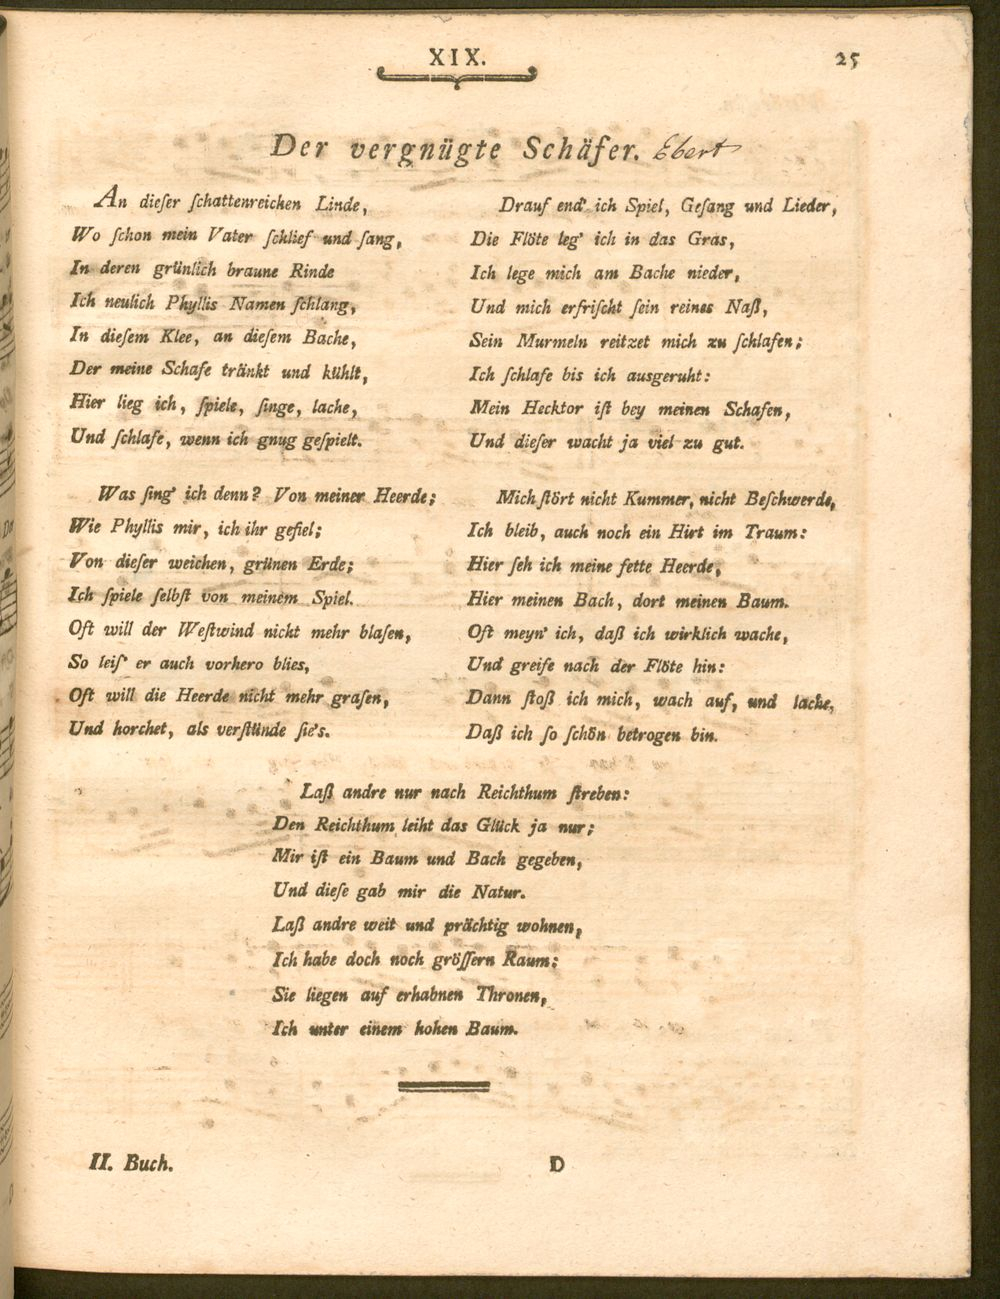 XIX.
25
Der vergnügte Schäfer. Ebert
An dieſer ſchattenreichen Linde,
Wo ſchon mein Vater ſchlief und ſang,
In deren grünlich braune Rinde
Ich neulich Phyllis Namen ſchlang,
In dieſem Klee, an dieſem Bache,
Der meine Schafe tränkt und kühlt,
Hier lieg ich, ſpiele, ſinge, lache,
Und ſchlafe, wenn ich gnug geſpielt.
Was ſing' ich denn? Von meiner Heerde;
Wie Phyllis mir, ich ihr gefiel;
Von dieſer weichen, grünen Erde;
Ich ſpiele ſelbſt von meinem Spiel.
Oft will der Weſtwind nicht mehr blaſen,
So leiſ' er auch vorhero blies,
Oft will die Heerde nicht mehr graſen,
Und horchet, als verſtünde ſie's.
Drauf end' ich Spiel, Geſang und Lieder,
Die Flöte leg' ich in das Gras,
Ich lege mich am Bache nieder,
Und mich erfriſcht ſein reines Naß,
Sein Murmeln reitzet mich zu ſchlafen;
Ich ſchlafe bis ich ausgeruht:
Mein Hecktor iſt bey meinen Schafen,
Und dieſer wacht ja viel zu gut.
Mich ſtört nicht Kummer, nicht Beſchwerde,
Ich bleib, auch noch ein Hirt im Traum:
Hier ſeh ich meine fette Heerde,
Hier meinen Bach, dort meinen Baum.
Oft meyn' ich, daß ich wirklich wache,
Und greife nach der Flöte hin:
Dann ſtoß ich mich, wach auf, und lache,
Daß ich ſo ſchön betrogen bin.
Laß andre nur nach Reichthum ſtreben:
Den Reichthum leiht das Glück ja nur;
Mir iſt ein Baum und Bach gegeben,
Und dieſe gab mir die Natur.
Laß andre weit und prächtig wohnen,
Ich habe doch noch gröſſern Raum;
Sie liegen auf erhabnen Thronen,
Ich unter einem hohen Baum.
II. Buch.
D